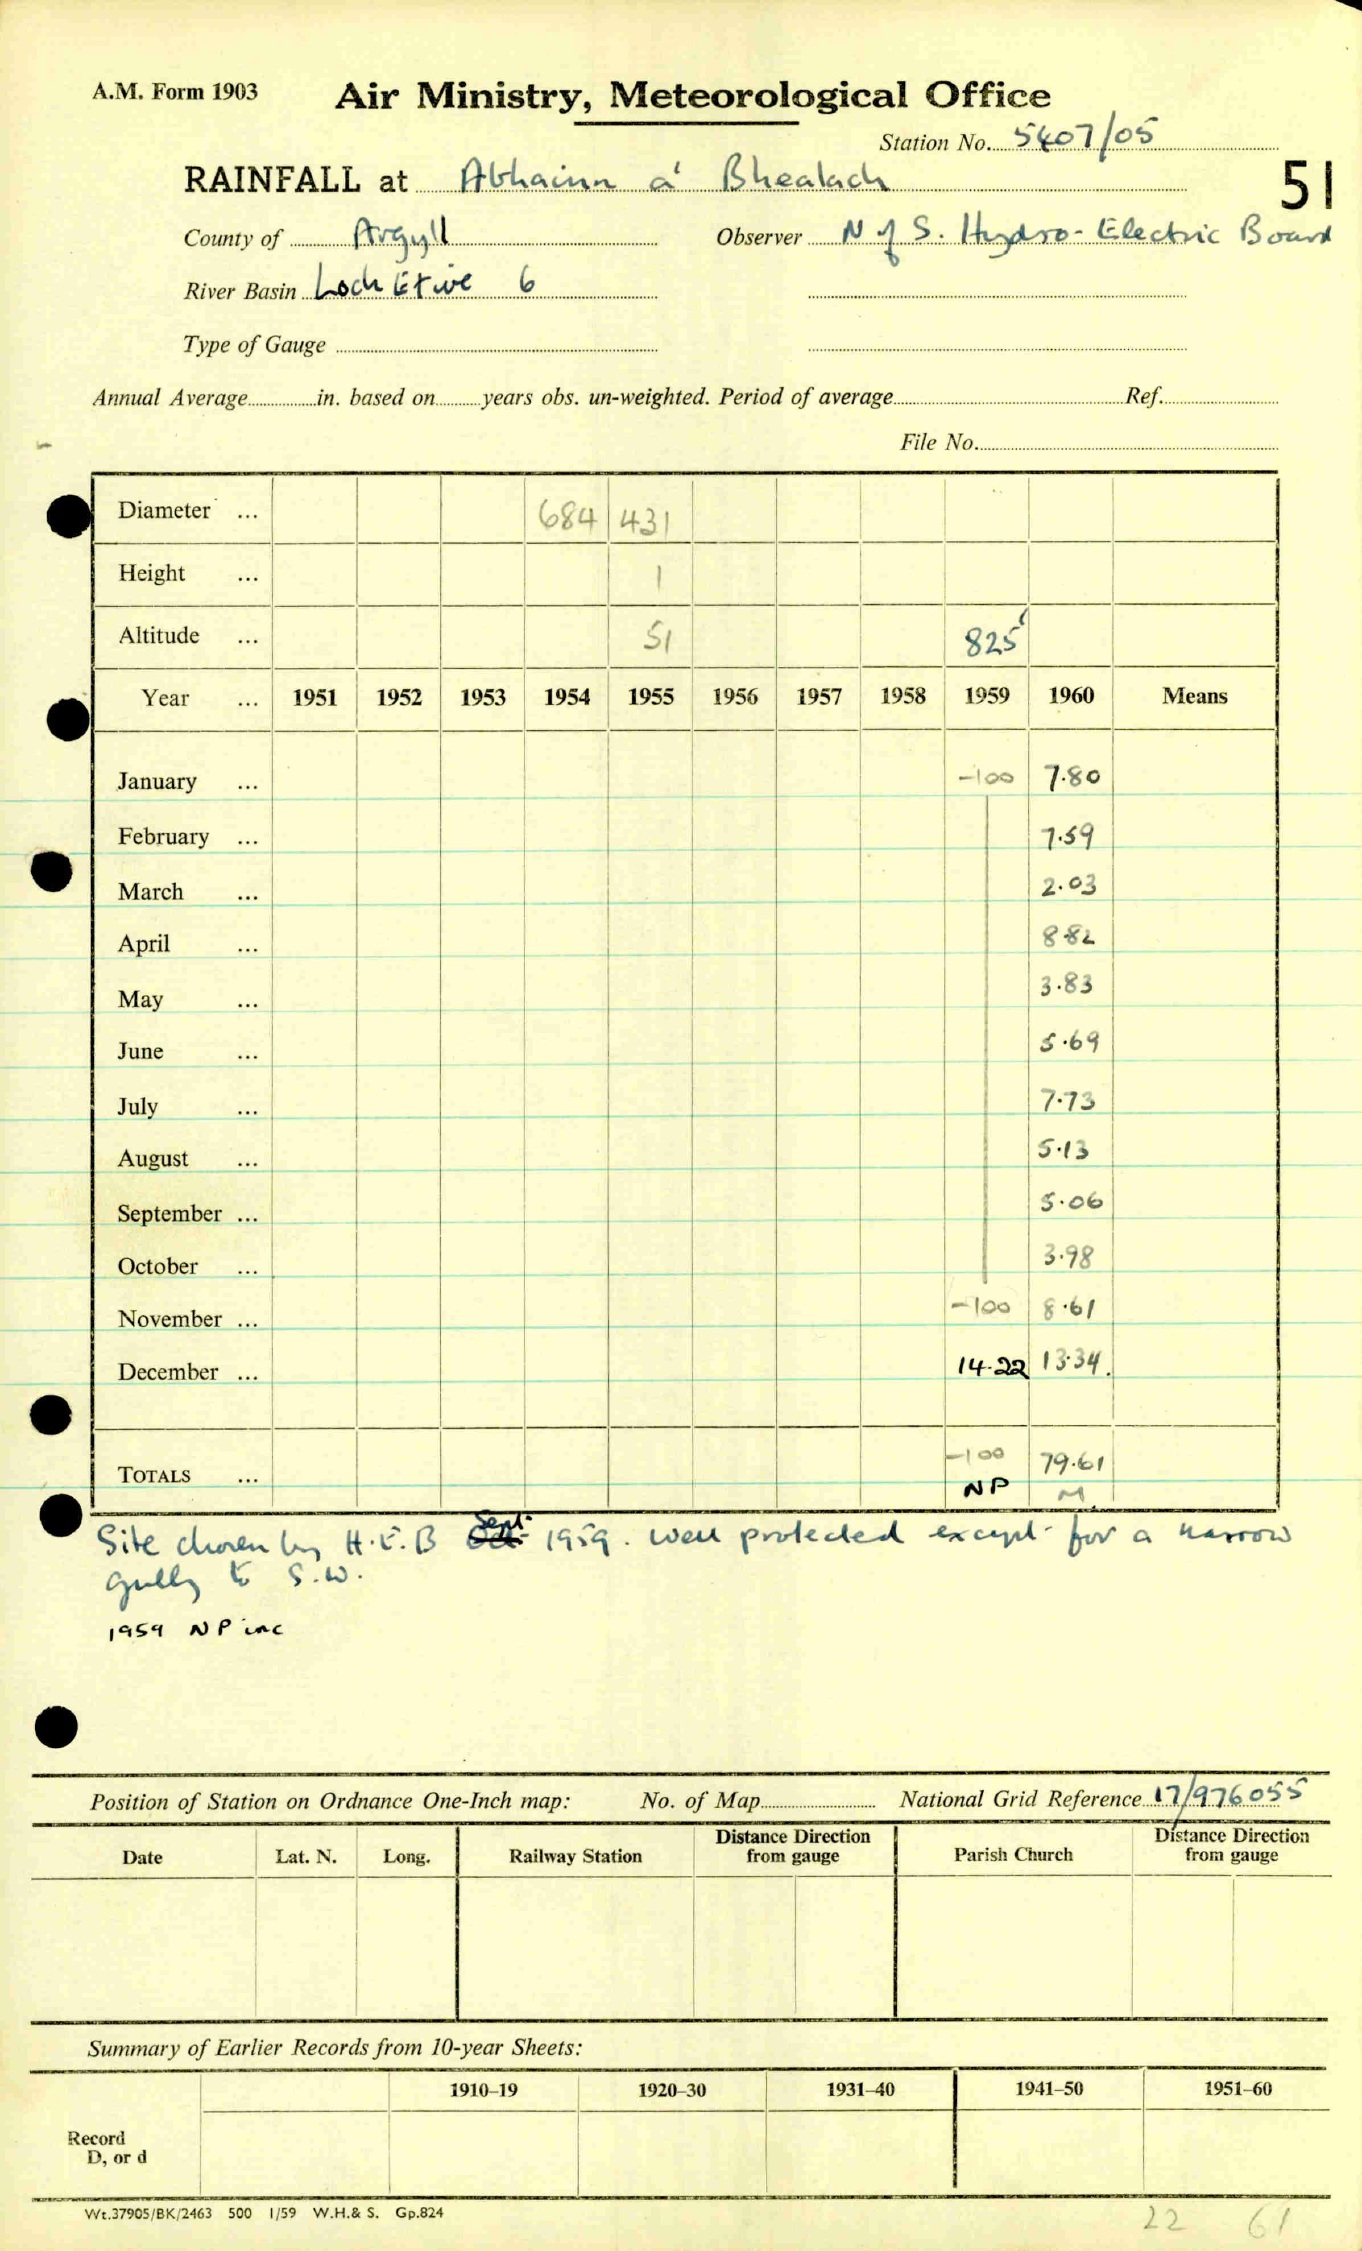 A.M. Form 1903
Air Ministry, Meteorological Office
Station No. 5407/05
RAINFALL at Abhainn a' Bhealach
51
County of Argyll Observer N of S. Hydro-Electric Board
River Basin Loch Etive 6
Type of Gauge
Annual Average in. based on years obs. un-weighted. Period of average Ref.
File No.
Diameter ... 684 431
Height ... 1
Altitude ... 51 825'
Year ... 1951 1952 1953 1954 1955 1956 1957 1958 1959 1960 Means
January ... -100 7.80
February ... 7.59
March ... 2.03
April ... 8.82
May ... 3.83
June ... 5.69
July ... 7.73
August ... 5.13
September ... 5.06
October ... 3.98
November ... -100 8.61
December ... 14.22 13.34.
TOTALS ... -100 79.61
NP M
Site chosen by H.E.B Sept. 1959. Well protected except for a narrow
gully to S.W.
1959 NP inc
Position of Station on Ordnance One-Inch map: No. of Map National Grid Reference 17/976055
Date Lat. N. Long. Railway Station Distance Direction from gauge Parish Church Distance Direction from gauge
Summary of Earlier Records from 10-year Sheets:
1910–19 1920–30 1931–40 1941–50 1951–60
Record
D, or d
Wt.37905/BK/2463 500 1/59 W.H.& S. Gp.824
22 61